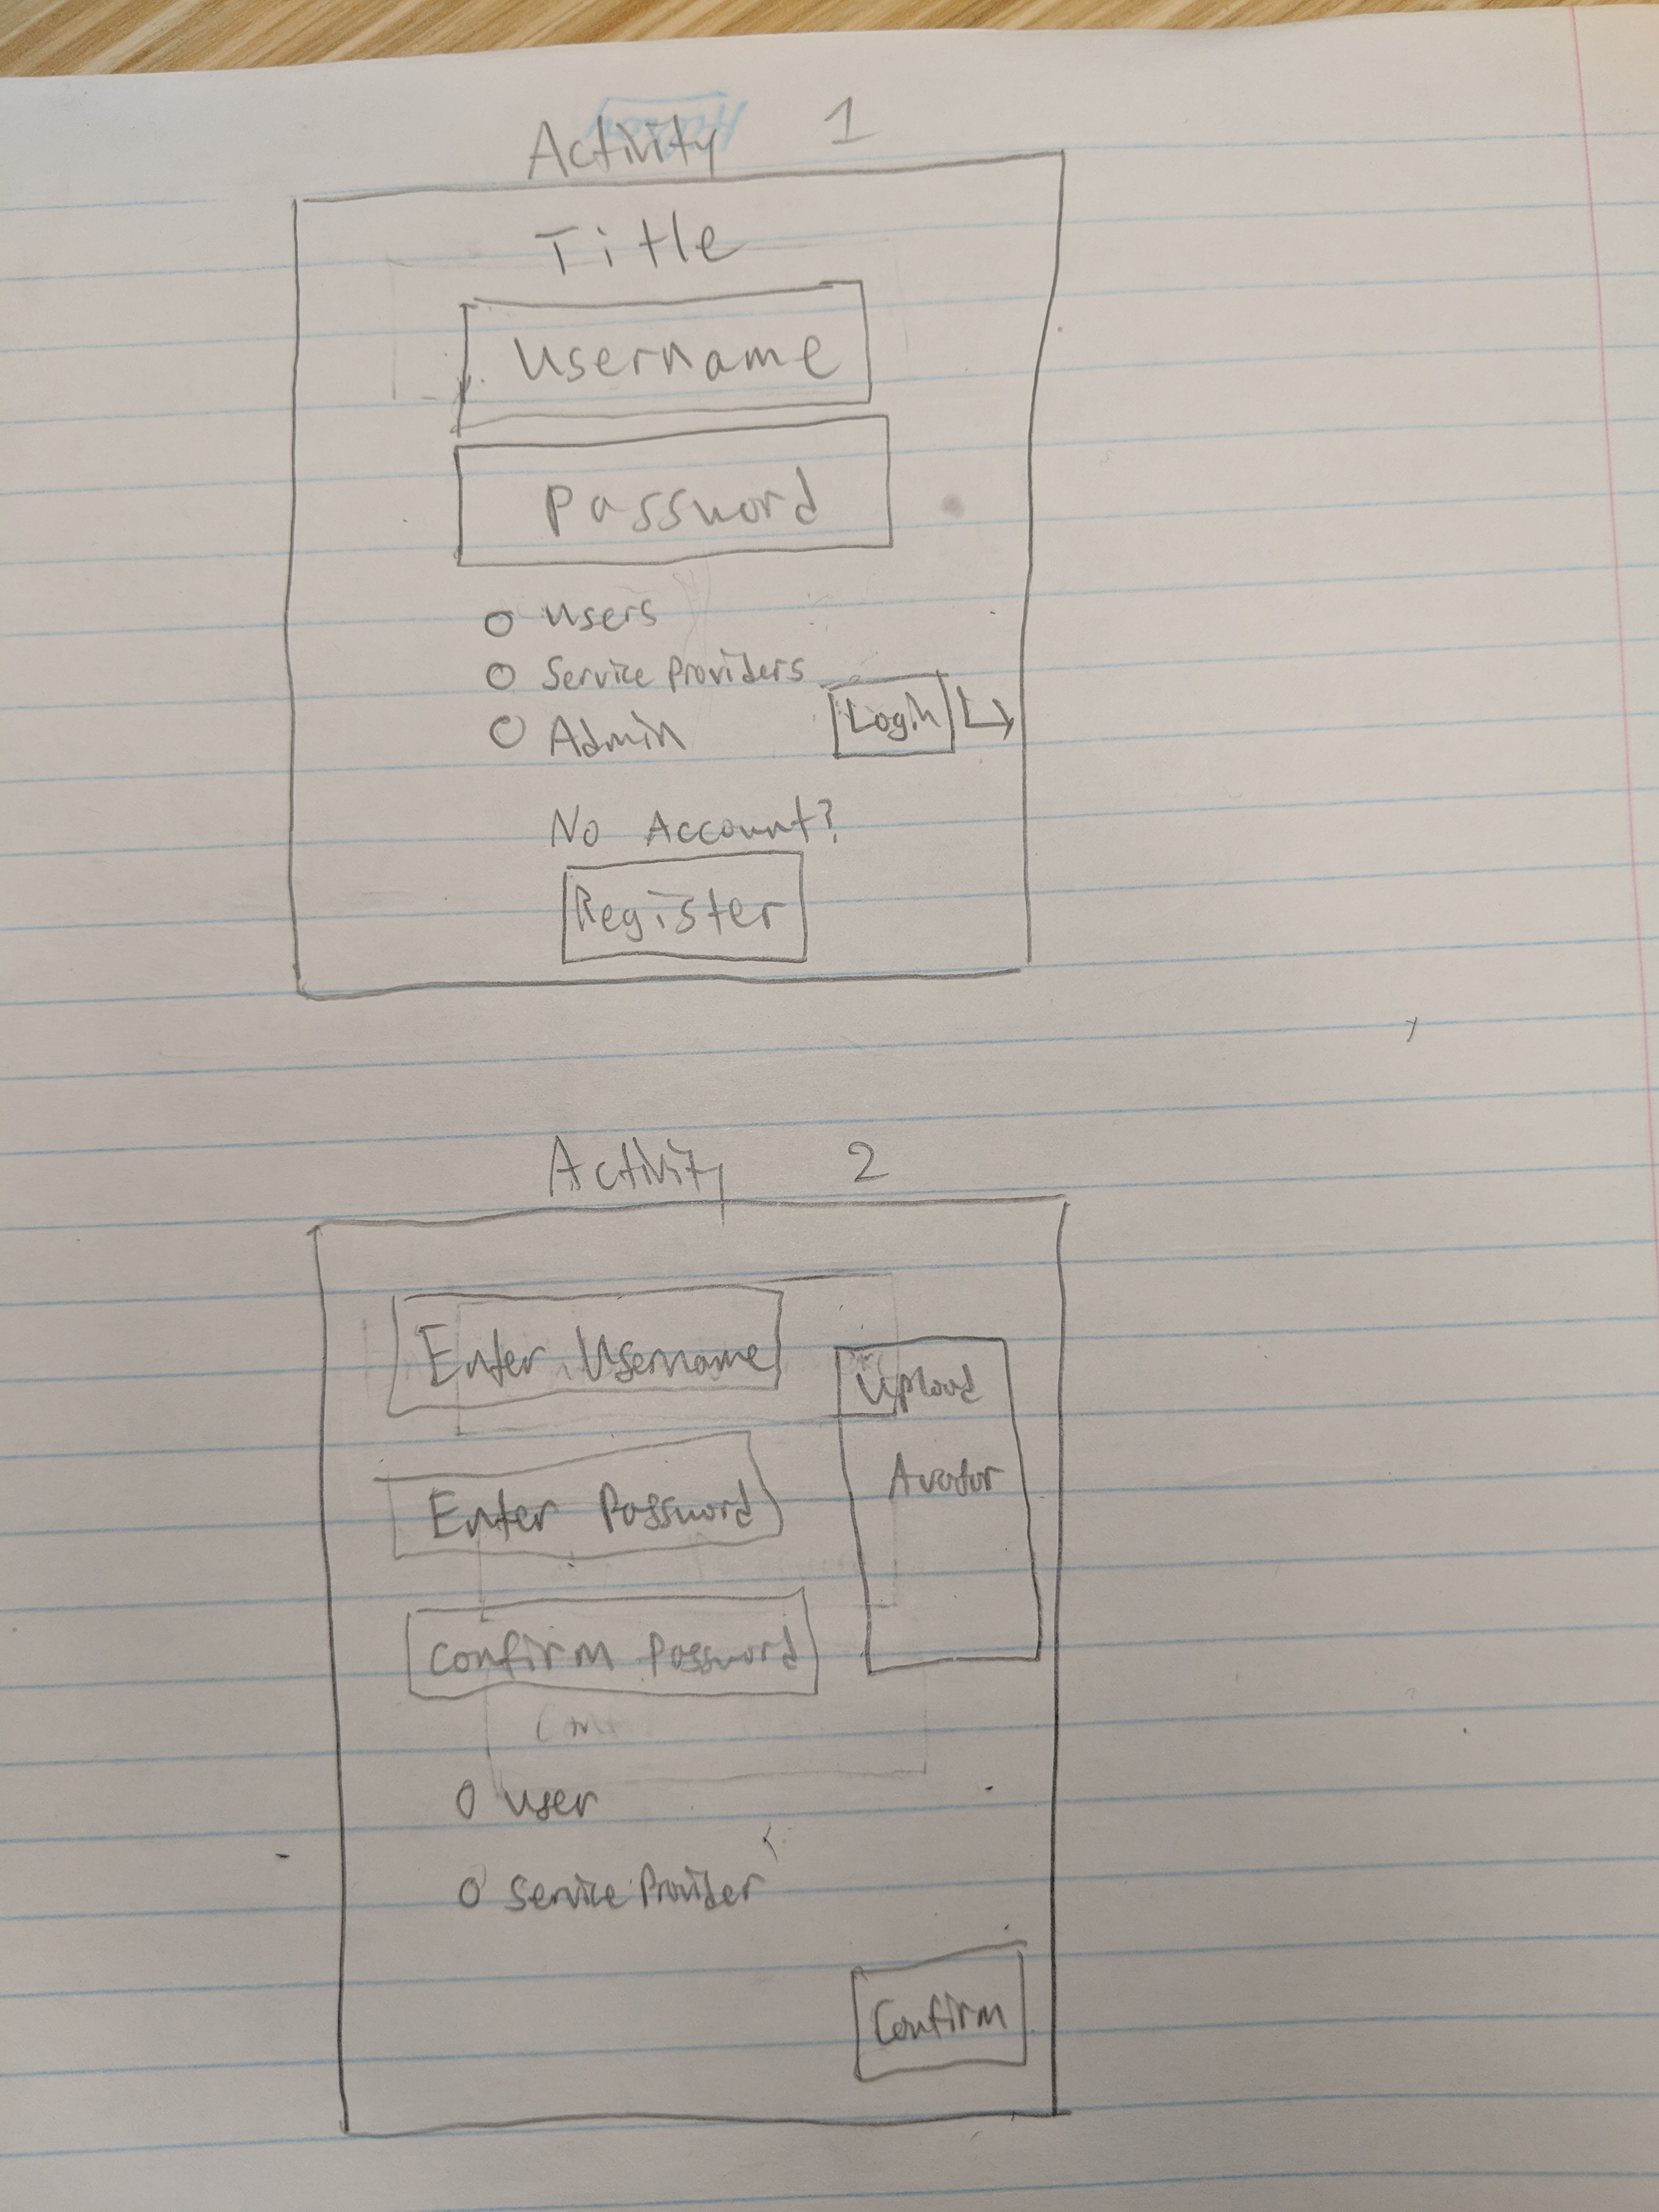 Activity 1
Title
Username
Password
Users
Service Providers
Admin
Login
No Account?
Register
Activity 2
Enter Username
Upload
Avatar
Enter Password
Confirm Password
User
Service Provider
Confirm